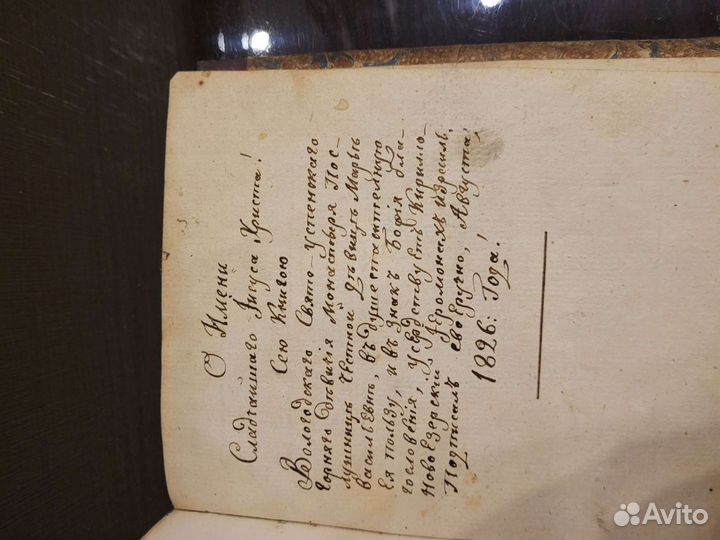 О Имени
Сладчайшаго Іисуса Христа!
Сею Книгою
Вологодскаго Свято-Успенскаго
Горняго Дѣвичія Монастыря Пос-
лушницу Честной Дѣвицѣ Марьѣ
васильевнѣ, въ душеспасительную
Ея пользу, и въ знакъ Божія Бла-
гословенія, усердствуетъ Кирилло-
Новоезерскій Іеромонахъ
Подписалъ своеручно, Августа,
1826: Года!
Avito